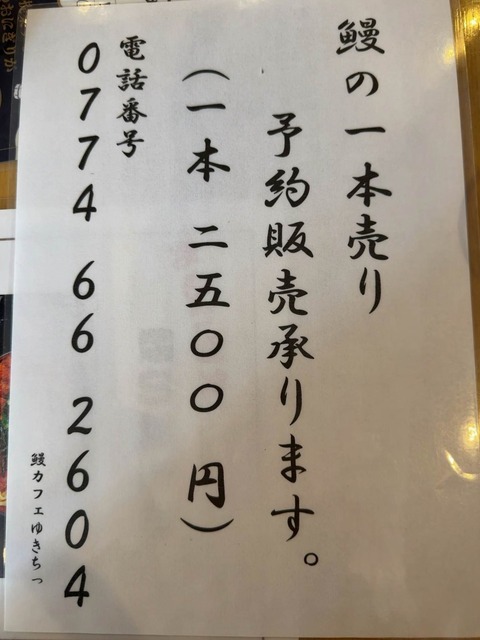 鰻の一本売り
予約販売承ります。
(一本 二五〇〇 円)
電話番号
0774 66 2604
鰻カフェゆきちっ
おにぎりか